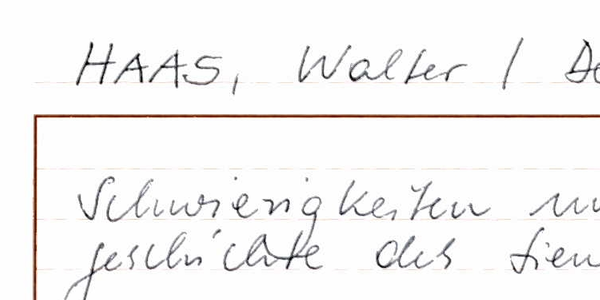 HAAS, Walter /
Schwierigkeiten
geschichte des